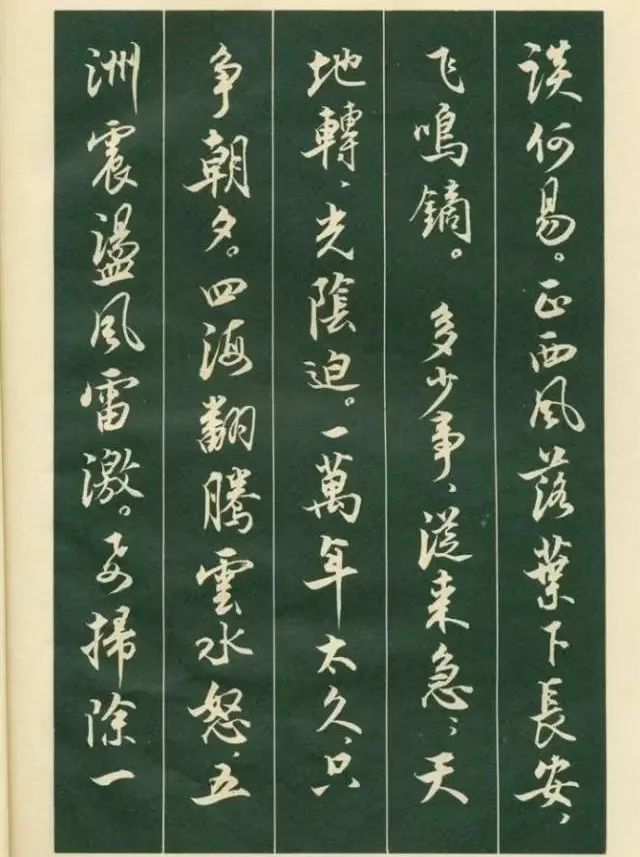 谈何易。正西风落葉下長安，
飞鳴鏑。 多少事、從来急；天
地轉、光陰迫。一萬年太久，只
争朝夕。四海翻騰雲水怒，五
洲震盪風雷激。要掃除一